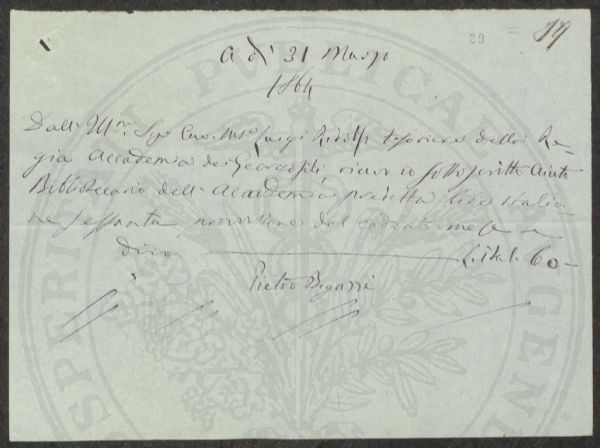 29
A dì 31 Marzo
1864
Dall' Illmo. Sigr. Cav. Luigi Ridolfi Tesoriere della Re-
gia Accademia dei Georgofili, ricevo io sottoscritto Aiuto
Bibliotecario dell' Accademia predetta lire Italia-
ne sessanta, provvisione del cadente mese e
dico L. Ital. 60 —
Pietro Bigazzi
PROSPERITATI PUBLICAE